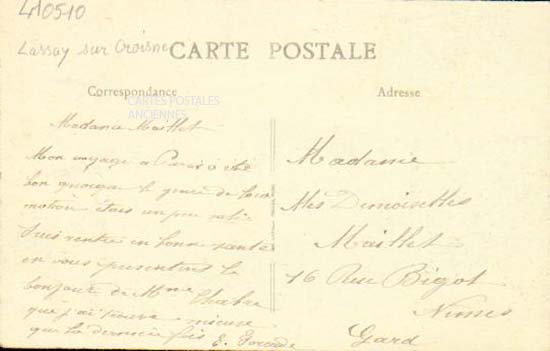 410510
Lassay sur Croisne
CARTE POSTALE
Correspondance
Adresse
CARTES POSTALES
ANCIENNES
Madame Maillet
Mon voyage a Paris a été
bon quoique le genre de loco
motion étais un peu
suis rentré en bonne santé
en vous présentent le
bonjour de Mme
que j'ai trouvé mieuse
que la dernière fois E.
Madame
Mes Demoiselles
Maillet
16 Rue Bigot
Nimes
Gard